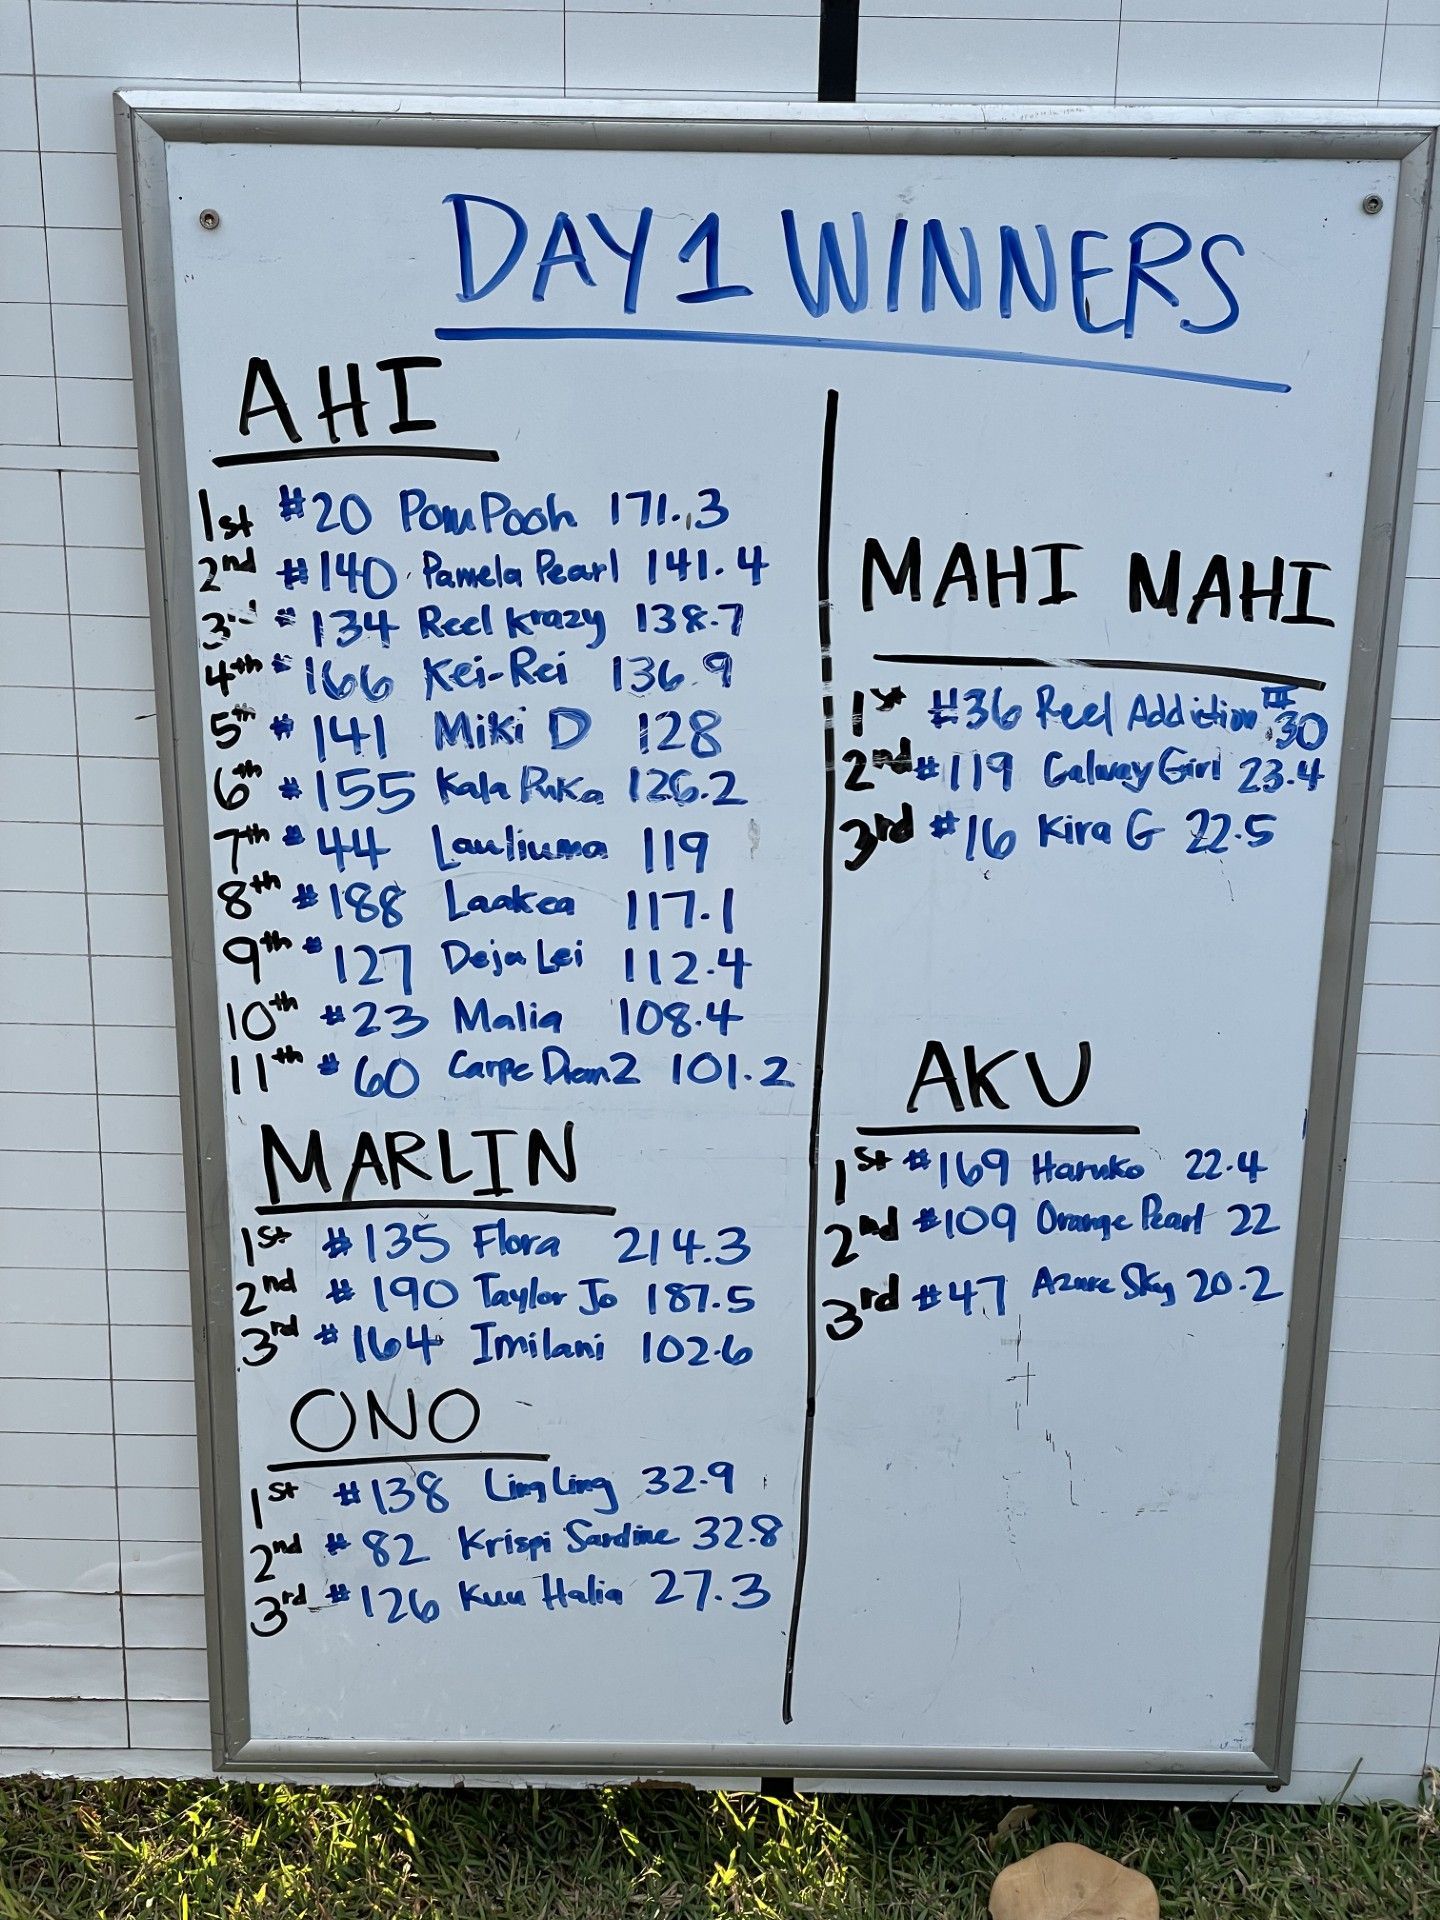 DAY 1 WINNERS
AHI
1st #20 PomPooh 171.3
2nd #140 Pamela Pearl 141.4
3rd #134 Reel Krazy 138.7
4th #166 Kei-Rei 136.9
5th #141 Miki D 128
6th #155 Kala Puka 126.2
7th #44 Lauliuma 119
8th #188 Laakea 117.1
9th #127 Deja Lei 112.4
10th #23 Malia 108.4
11th #60 Carpe Diem 2 101.2
MARLIN
1st #135 Flora 214.3
2nd #190 Taylor Jo 187.5
3rd #164 Imilani 102.6
ONO
1st #138 Ling Ling 32.9
2nd #82 Krispi Sardine 32.8
3rd #126 Kuu Halia 27.3
MAHI MAHI
1st #36 Reel Addiction III 30
2nd #119 Galway Girl 23.4
3rd #16 Kira G 22.5
AKU
1st #169 Haruko 22.4
2nd #109 Orange Pearl 22
3rd #47 Azure Sky 20.2